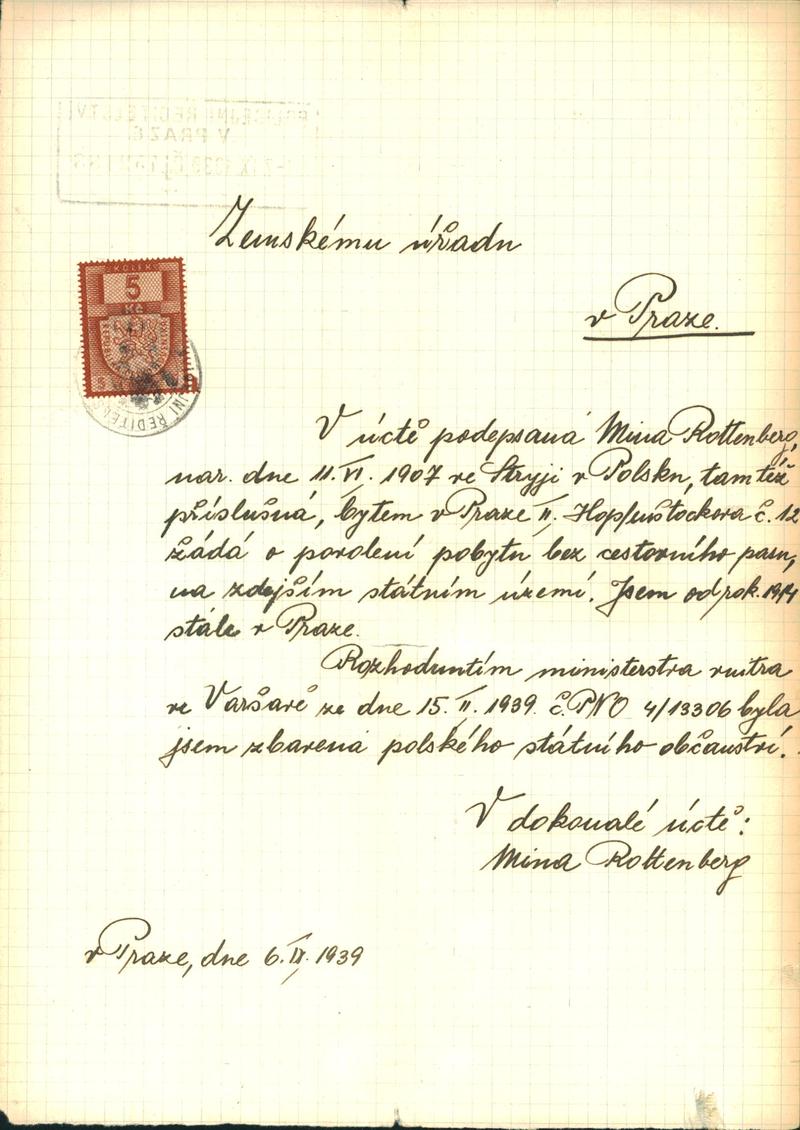 Zemskému úřadu
v Praze.
KOLEK
5
Kč
V úctě podepsaná Mina Rottenberg,
nar. dne 11.VI. 1907 ve Stryji v Polsku, tamtéž
příslušná, bytem v Praze II. č. 12
žádá o povolení pobytu bez cestovního pasu,
na zdejším státním území. Jsem od rok. 1914
stále v Praze.
Rozhodnutím ministerstva vnitra
ve Varšavě ze dne 15. II. 1939 č. PNO 4/13306 byla
jsem zbavena polského státního občanství.
V dokonalé úctě:
Mina Rottenberg
v Praze, dne 6. IX. 1939